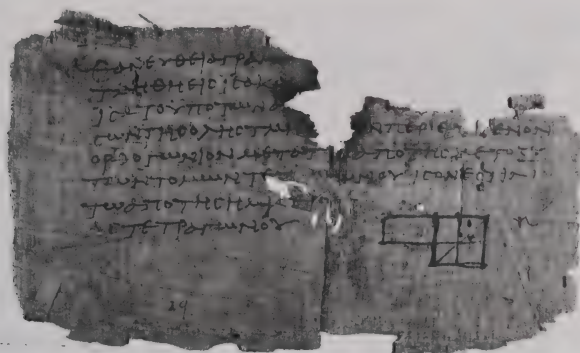 ΕΑΝ ΕΥΘΕΙΑ
ΤΜΗΘΗ ΕΙϹ ΙϹΑ
ΙϹΑ ΤΟ ΥΠΟ ΤΩΝ ΑΝ
ϹΩΝ ΤΗϹ ΟΛΗϹ ΤΜ ΩΝ ΠΕΡΙΕΧΟΜΕΝΟΝ
ΟΡΘΟΓΩΝΙΟΝ ΜΕΤΑ ΤΟΥ ΑΠΟ ΤΗϹ ΜΕΤΟΞΥ
ΤΩΝ ΤΟΜΩΝ ΤΕ ΓΩΝΟΥ ΙϹΟΝ ΕϹΤΙΝ
ΤΩ ΑΠΟ ΤΗϹ ΗΜΙϹΕΙΑϹ
ΤΕΤΡΑΓΩΝΟΥ
29